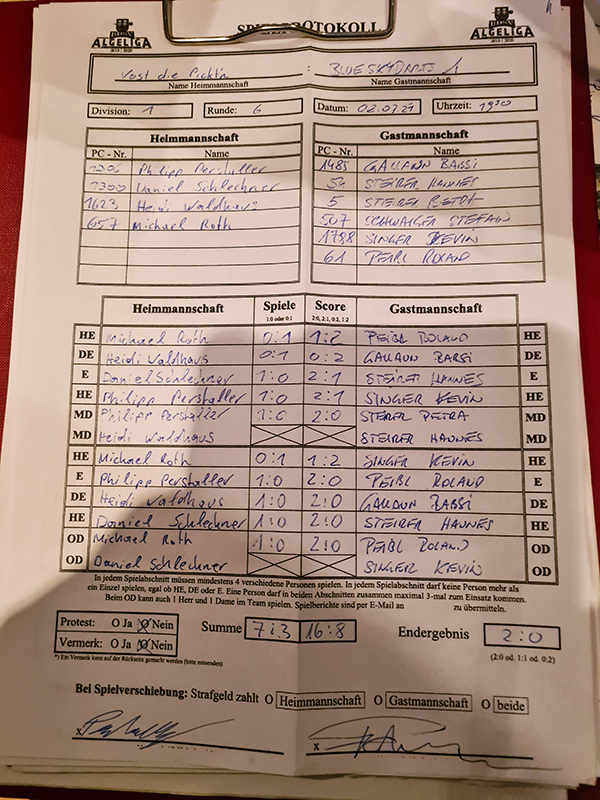 SPIELPROTOKOLL
ALGELIGA
2019 | 2020
ALGELIGA
2019 | 2020
: BLUESKYDARTS 1
Name Heimmannschaft Name Gastmannschaft
Division: 1 Runde: 6 Datum: 02.07.21 Uhrzeit: 1930
Heimmannschaft
PC - Nr. Name
Philipp Perstaller
1300 Daniel Schlechner
1623 Heidi Waldhaus
657 Michael Roth
Gastmannschaft
PC - Nr. Name
1485 GALLAUN BABSI
54 STEIRER HANNES
5 STEIRER
507 SCHWAIGER STEFAN
1788 SINGER KEVIN
61 PEIBL ROLAND
Heimmannschaft Spiele Score Gastmannschaft
1:0 oder 0:1 2:0, 2:1, 0:2, 1:2
HE Michael Roth 0:1 1:2 PEIBL ROLAND HE
DE Heidi Waldhaus 0:1 0:2 GALLAUN BABSI DE
E Daniel Schlechner 1:0 2:1 STEIRER HANNES E
HE Philipp Perstaller 1:0 2:1 SINGER KEVIN HE
MD Philipp Perstaller 1:0 2:0 STEIRER PETRA MD
MD Heidi Waldhaus STEIRER HANNES MD
HE Michael Roth 0:1 1:2 SINGER KEVIN HE
E Philipp Perstaller 1:0 2:0 PEIBL ROLAND E
DE Heidi Waldhaus 1:0 2:0 GALLAUN BABSI DE
HE Daniel Schlechner 1:0 2:0 STEIRER HANNES HE
OD Michael Roth 1:0 2:0 PEIBL ROLAND OD
OD Daniel Schlechner SINGER KEVIN OD
In jedem Spielabschnitt müssen mindestens 4 verschiedene Personen spielen. In jedem Spielabschnitt darf keine Person mehr als
ein Einzel spielen, egal ob HE, DE oder E. Eine Person darf in beiden Abschnitten zusammen maximal 3-mal zum Einsatz kommen.
Beim OD kann auch 1 Herr und 1 Dame im Team spielen. Spielberichte sind per E-Mail an zu übermitteln.
Protest: O Ja O Nein Summe 7:3 16:8 Endergebnis 2:0
Vermerk: O Ja O Nein
(2:0 od. 1:1 od. 0:2)
*) Ein Vermerk kann auf der Rückseite gemacht werden (bitte mitsenden)
Bei Spielverschiebung: Strafgeld zahlt O Heimmannschaft O Gastmannschaft O beide
x x